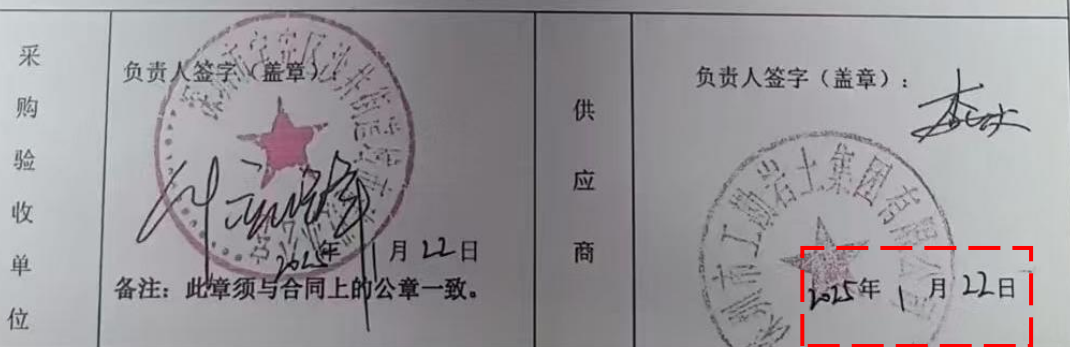 采购验收单位
负责人签字（盖章）：
2025年 月22日
备注：此章须与合同上的公章一致。
供应商
负责人签字（盖章）：
深圳市工勘岩土集团有限公司
2025年1月22日